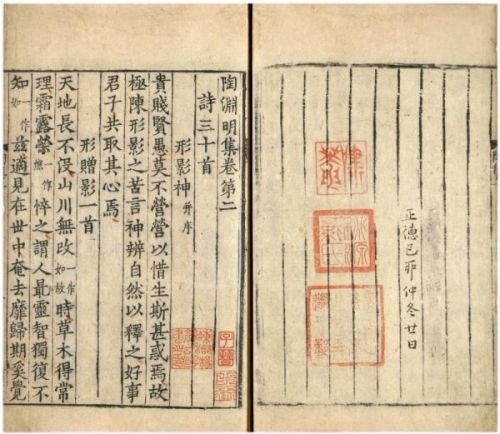 正德己卯仲冬廿日
陶淵明集卷第二
詩三十首
形影神并序
貴賤賢愚莫不營營以惜生斯甚惑焉故
極陳形影之苦言神辨自然以釋之好事
君子共取其心焉
形贈影一首
天地長不沒山川無改一作如故時草木得常
理霜露榮一作憔悴之謂人最靈智獨復不
知一作如茲適見在世中奄去靡歸期奚覺